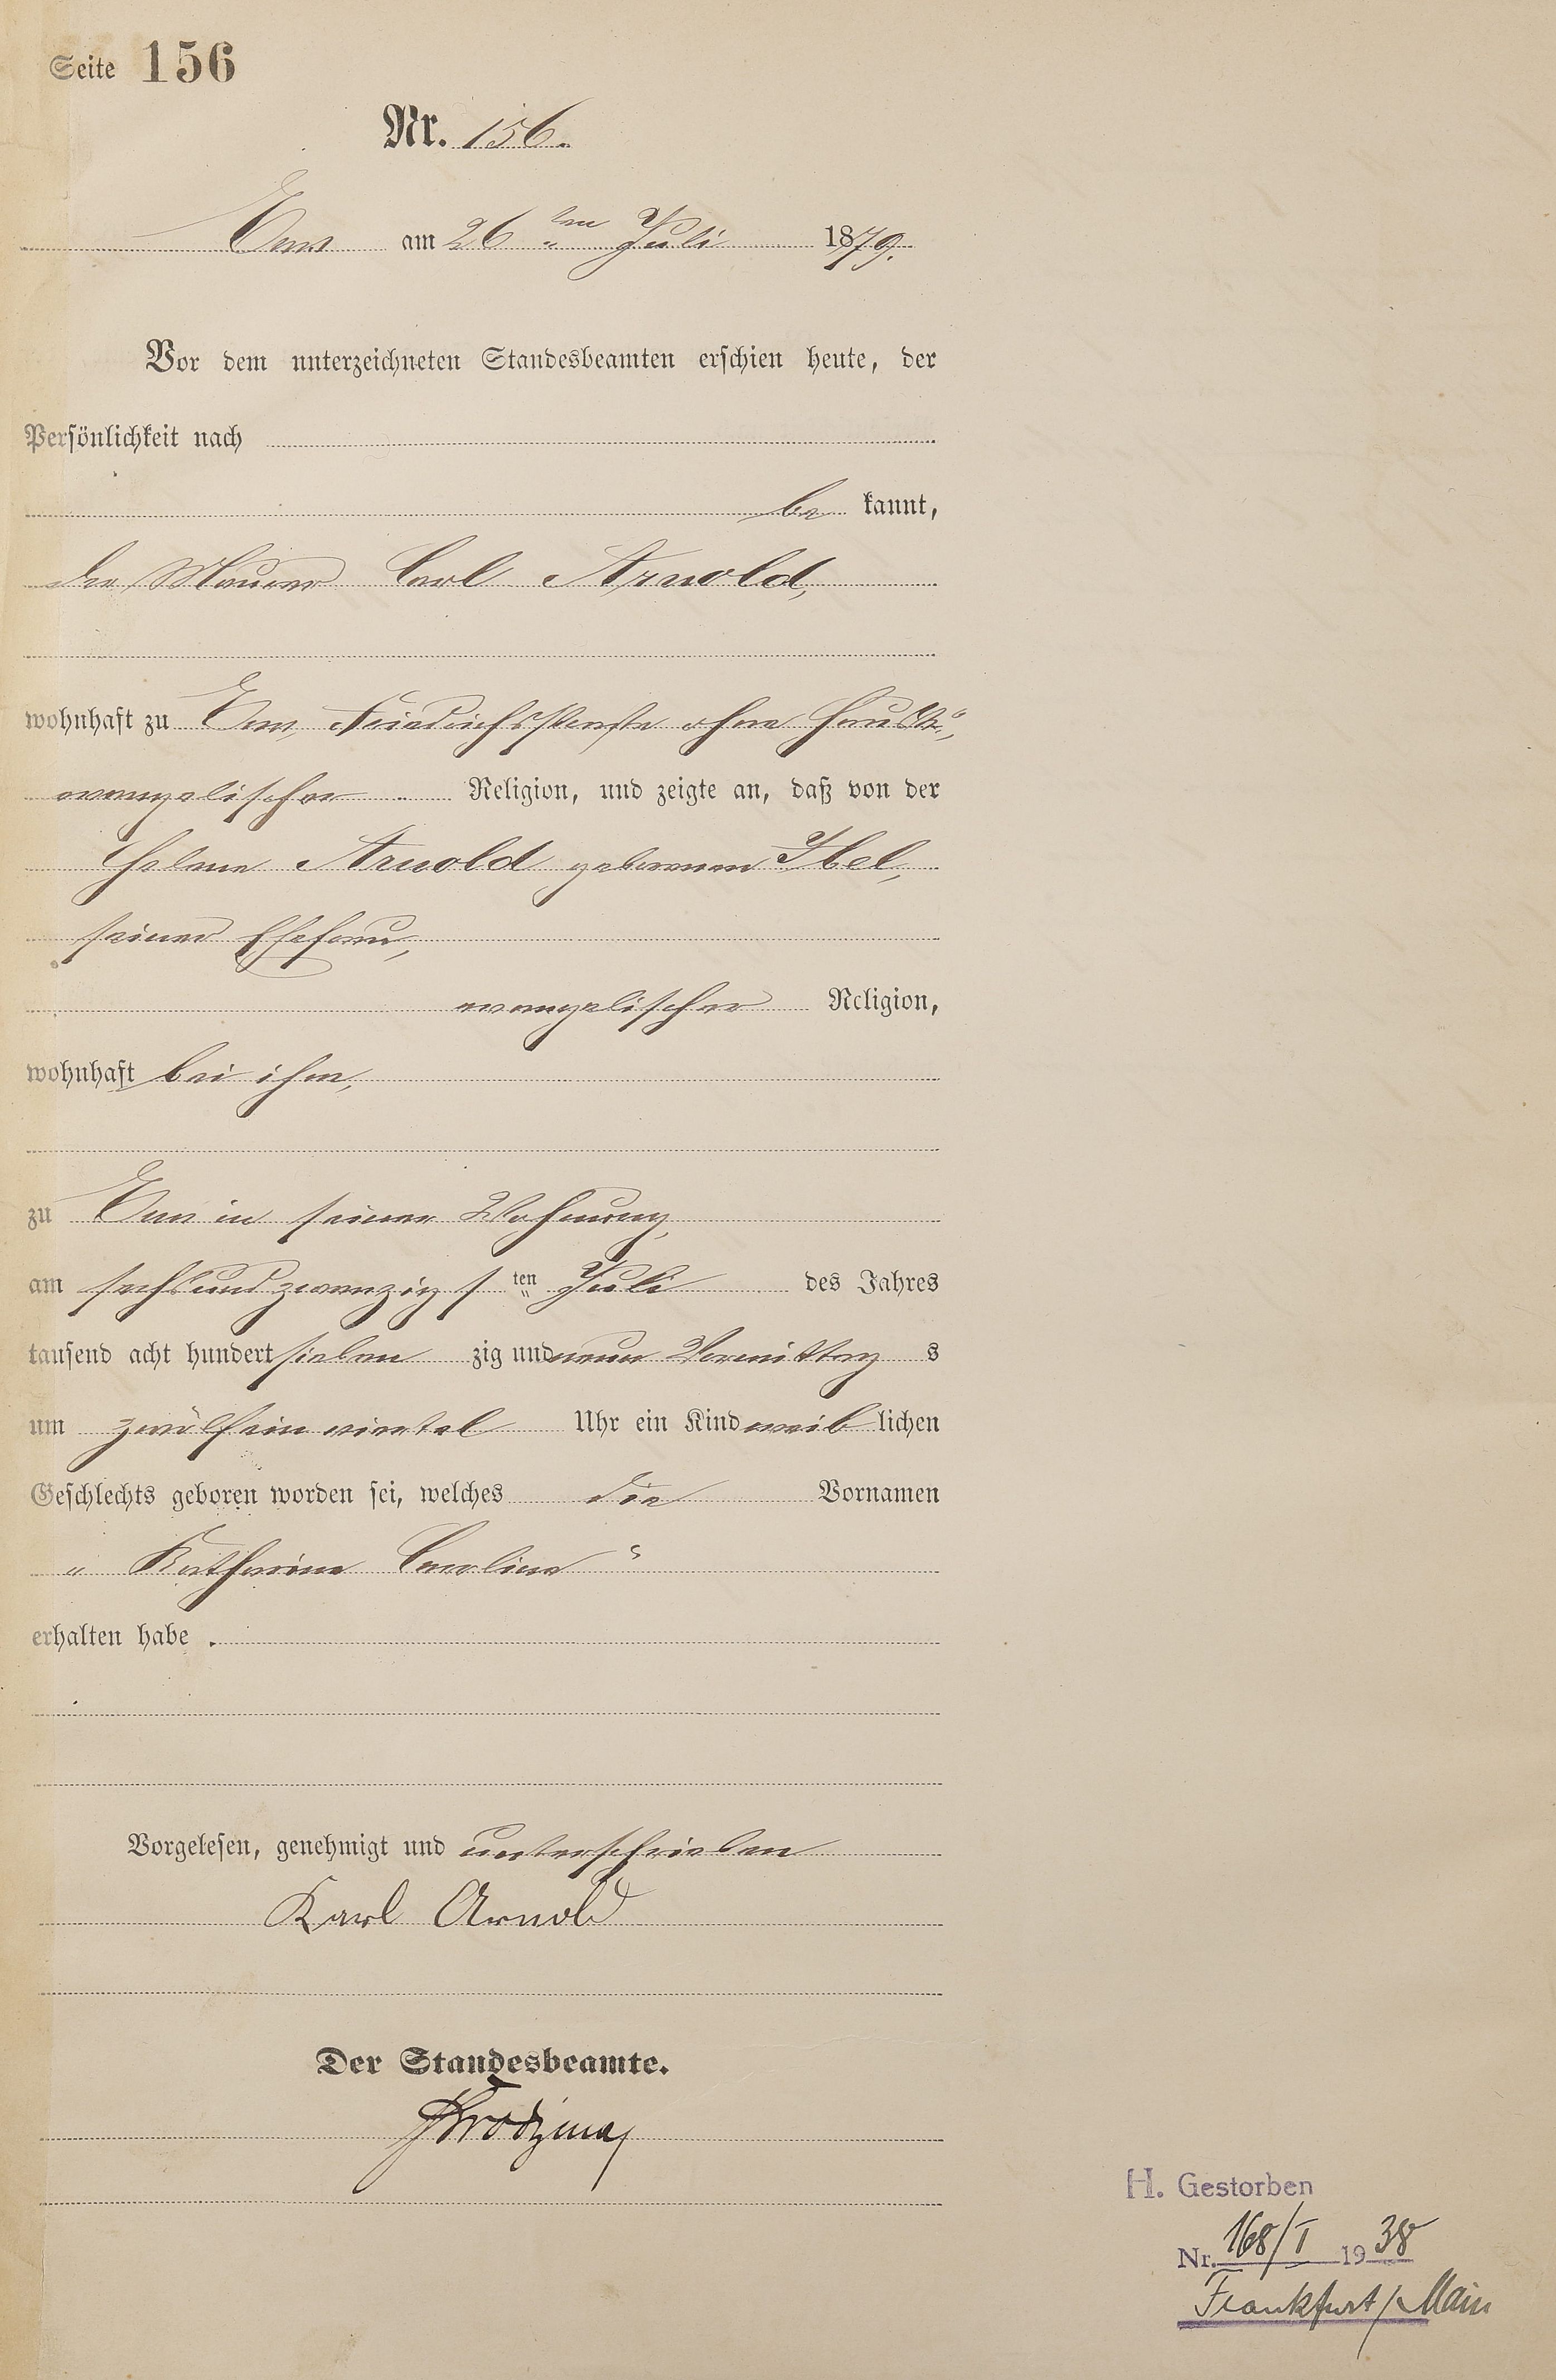 Seite 156
Nr. 156.
Ems am 26ten Juli 1879.
Vor dem unterzeichneten Standesbeamten erschien heute, der
Persönlichkeit nach
be kannt,
der Maurer Carl Arnold,
wohnhaft zu Ems, Friedrichsstraße ohne Haus
evangelischer Religion, und zeigte an, daß von der
Helene Arnold geborenen Ibel,
seiner Ehefrau,
evangelischer Religion,
wohnhaft bei ihm,
zu Ems in seiner Wohnung,
am sechsundzwanzigsten Juli des Jahres
tausend acht hundert sieben zig und neun Vormittag s
um zwölf ein viertel Uhr ein Kind weib lichen
Geschlechts geboren worden sei, welches die Vornamen
„Katharine Caroline“
erhalten habe.
Vorgelesen, genehmigt und unterschrieben
Karl Arnold
Der Standesbeamte.
H. Gestorben
Nr. 168/I 1938
Frankfurt/Main